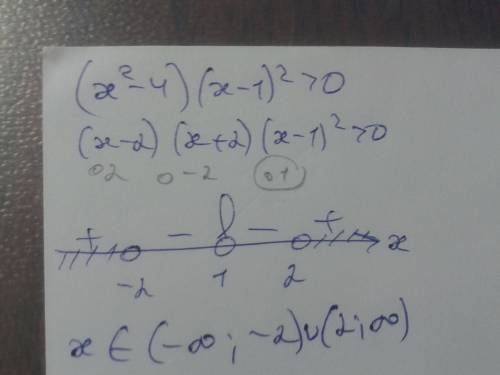 (x²-4)(x-1)²>0
(x-2)(x+2)(x-1)²>0
∘2 ∘-2 ∘1
+ - - + x
-2 1 2
x ∈ (-∞; -2)∪(2; ∞)